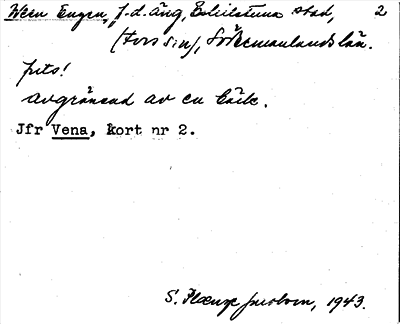 Wern Engen, f.d. äng, Eskilstuna stad, 2
(Fors sn), Södermanlands län.
futs!
avgränsad av en bäck.
Jfr Vena, kort nr 2.
S. , 1943.